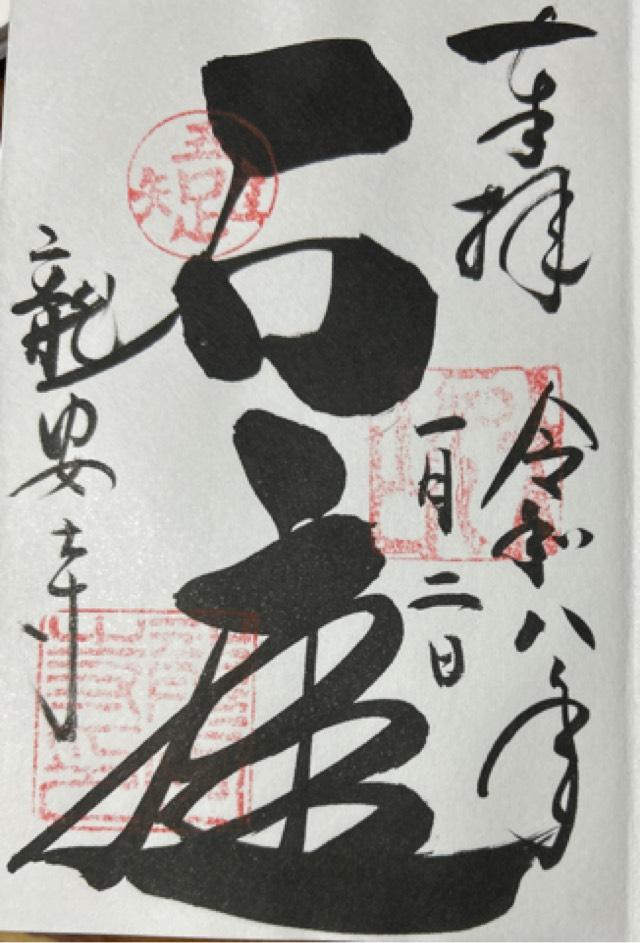 奉拝
令和八年
一月二日
石庭
龍安寺
吾唯足知